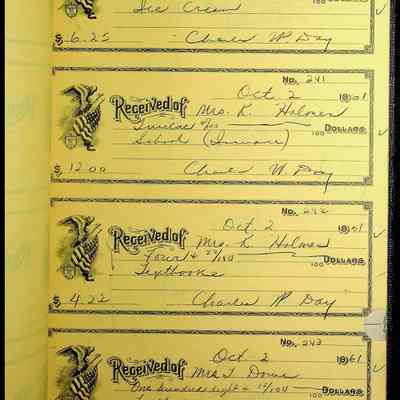 Ice Cream 100
$ 6.25 Charles W. Day
No. 241
Oct 2 1961
Received of Mrs. K. Holmes
Twelve & no 100 Dollars
School
$ 12.00 Charles W. Day
No. 242
Oct 2 1961
Received of Mrs. K. Holmes
Four & 22/100 100 Dollars
Textbooks
$ 4.22 Charles W. Day
No. 243
Oct 2 1961
Received of Mrs. T.
One hundred eight & 100 Dollars